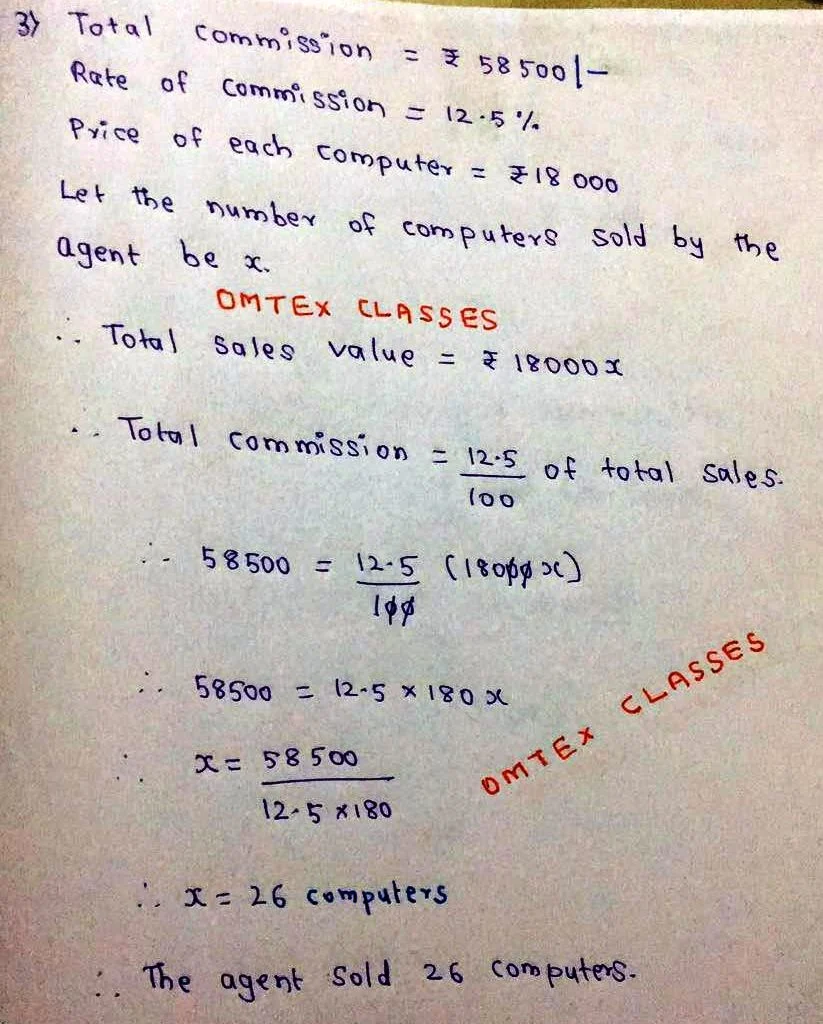 3) Total commission = ₹ 58500/-
Rate of commission = 12.5 %
Price of each computer = ₹18 000
Let the number of computers sold by the
agent be x.
OMTEX CLASSES
∴ Total sales value = ₹ 18000x
∴ Total commission = 12.5/100 of total sales.
∴ 58500 = 12.5/100 (18000x)
∴ 58500 = 12.5 × 180 x
∴ x = 58500/12.5 × 180
OMTEX CLASSES
∴ x = 26 computers
∴ The agent sold 26 computers.